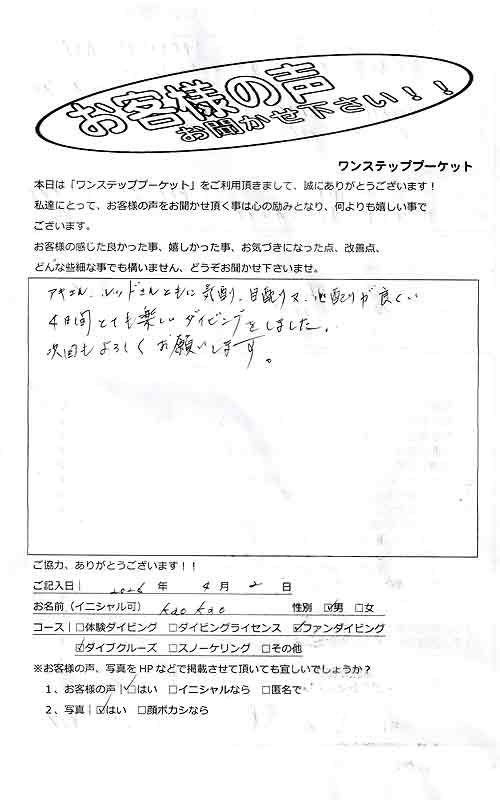 お客様の声
お聞かせ下さい！！
ワンステッププーケット
本日は「ワンステッププーケット」をご利用頂きまして、誠にありがとうございます！
私達にとって、お客様の声をお聞かせ頂く事は心の励みとなり、何よりも嬉しい事で
ございます。
お客様の感じた良かった事、嬉しかった事、お気づきになった点、改善点、
どんな些細な事でも構いません、どうぞお聞かせ下さいませ。
アキさん、レッドさんともに気配り、目配り、心配りが良く
4日間とても楽しいダイビングをしました。
次回もよろしくお願いします。
ご協力、ありがとうございます！！
ご記入日｜ 2026 年 4 月 2 日
お名前（イニシャル可） kao kao 性別 ☑男 □女
コース｜□体験ダイビング □ダイビングライセンス ☑ファンダイビング
☑ダイブクルーズ □スノーケリング □その他
※お客様の声、写真をHPなどで掲載させて頂いても宜しいでしょうか？
１、お客様の声｜☑はい □イニシャルなら □匿名で
２、写真｜☑はい □顔ボカシなら